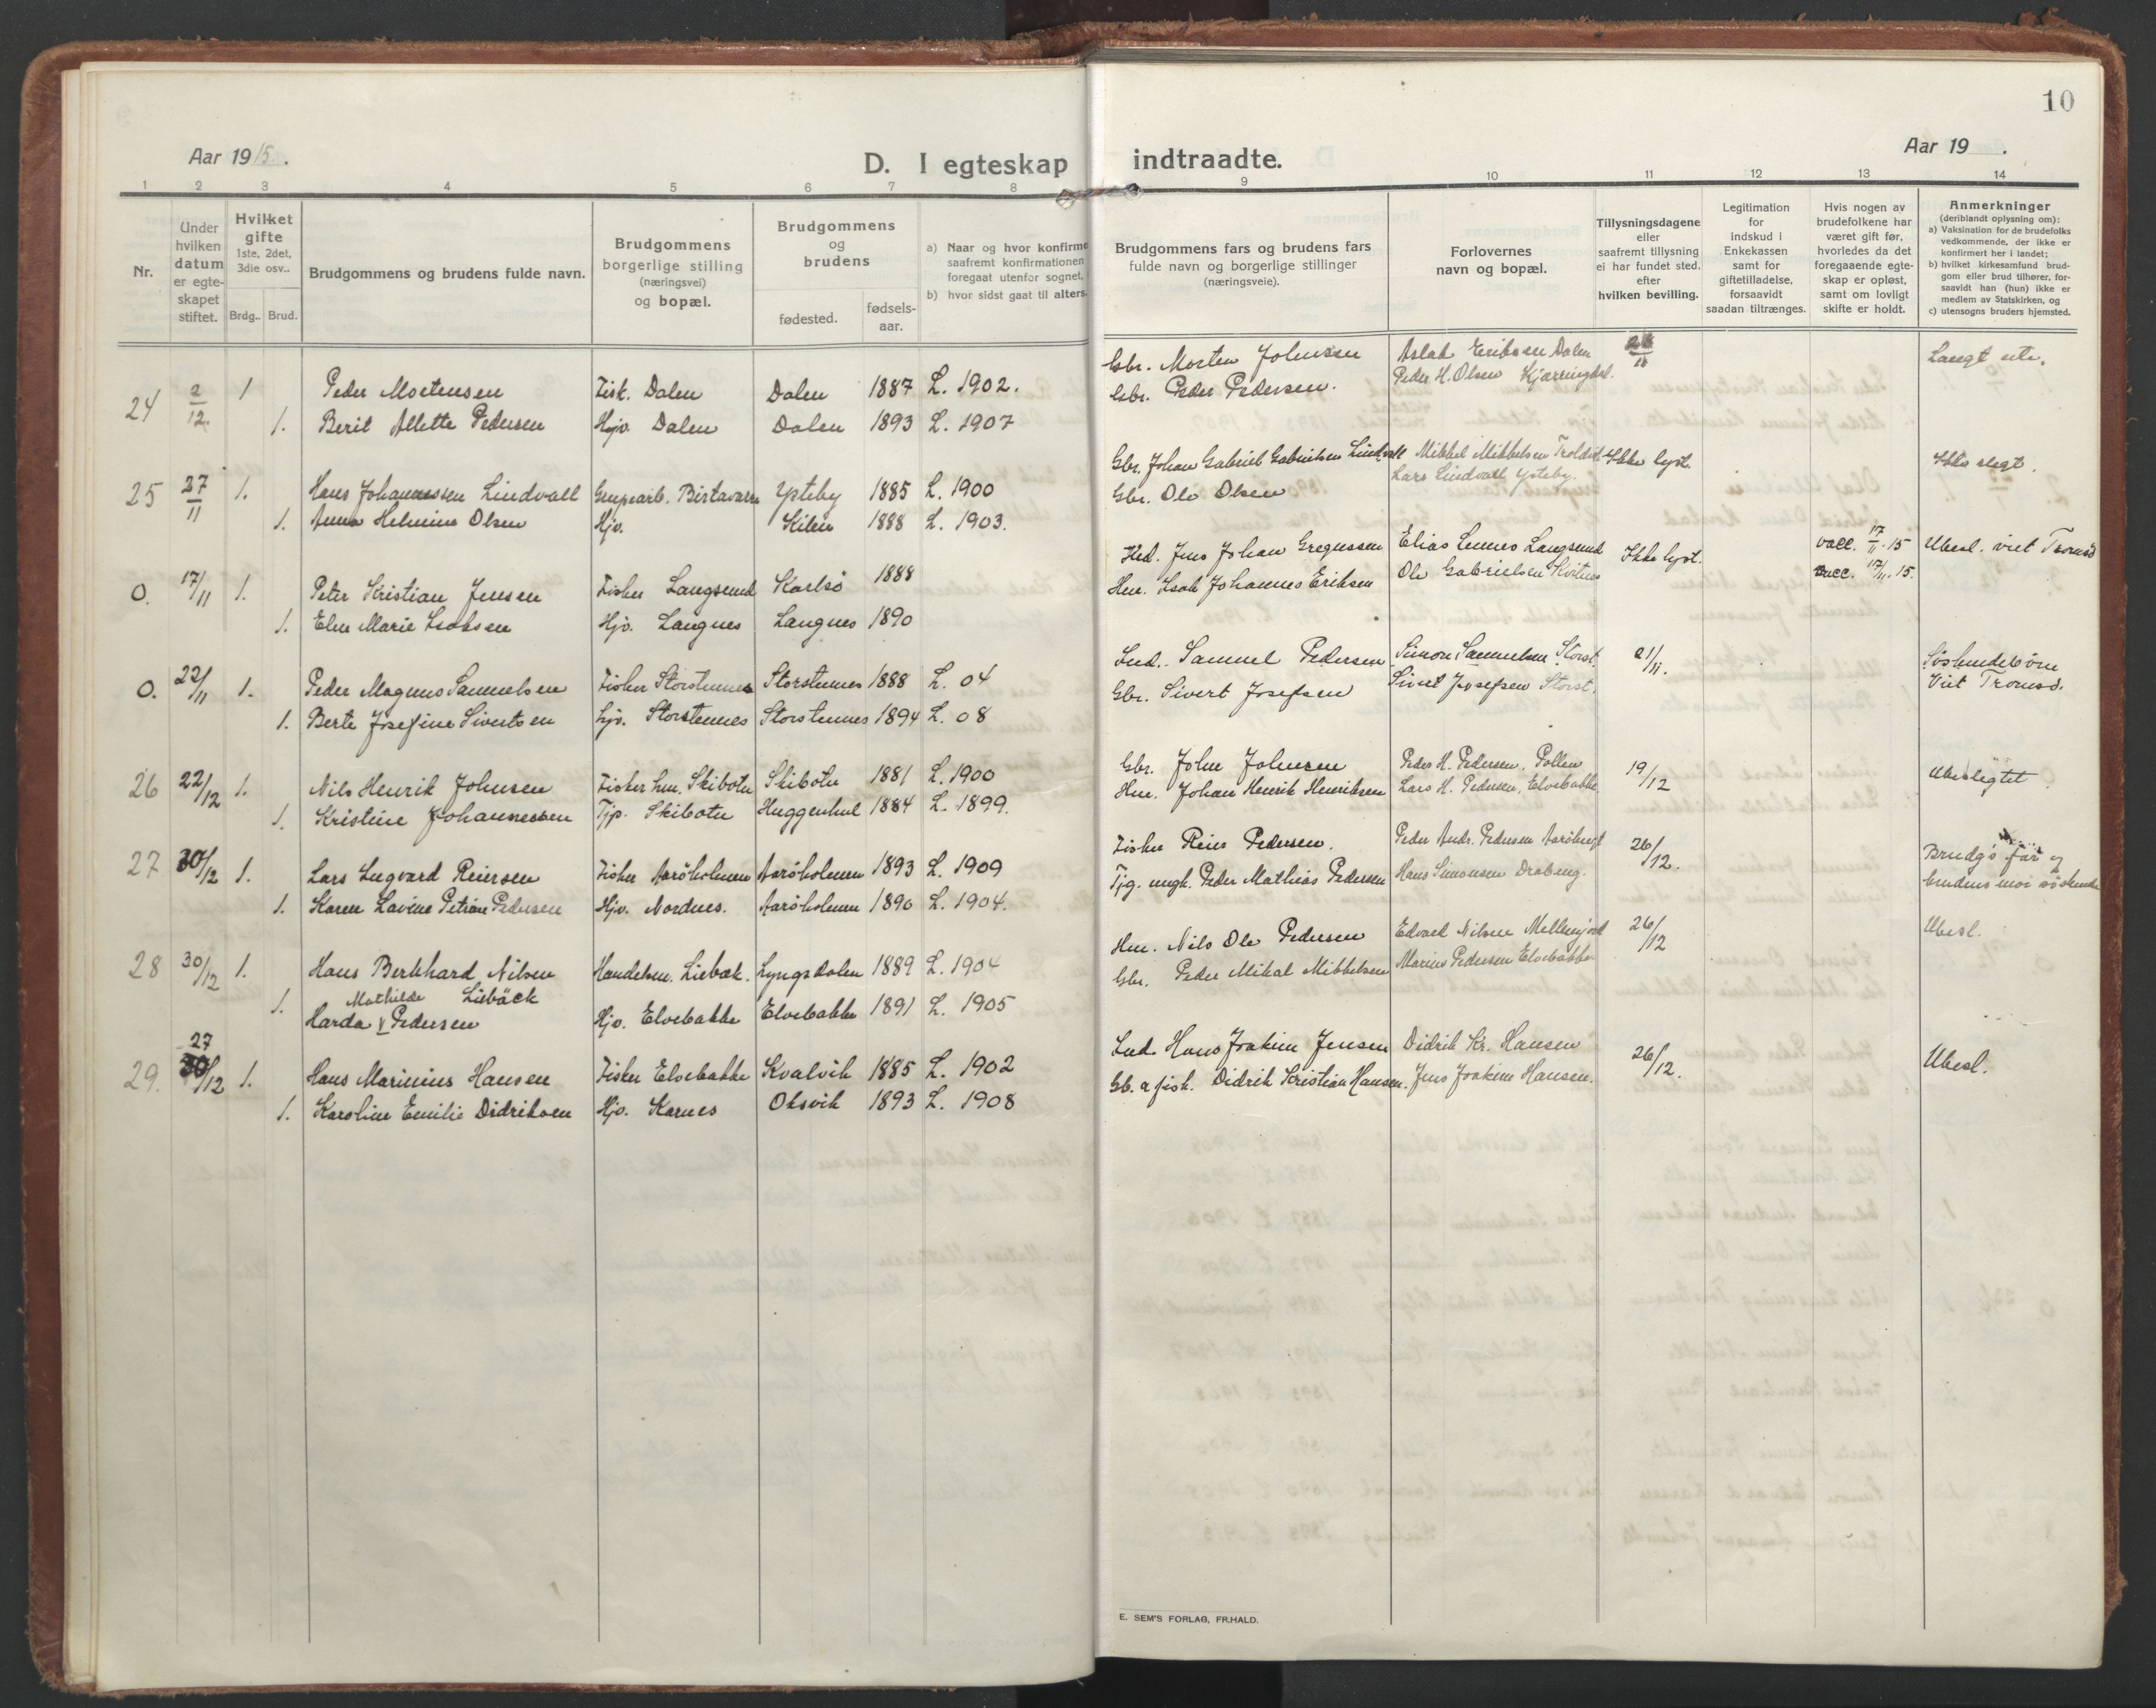 10
Aar 1915.
D. I egteskap indtraadte.
Aar 19 .
1 2 3 4 5 6 7 8 9 10 11 12 13 14
Nr.
Under hvilken datum er egteskapet stiftet.
Hvilket gifte
1ste, 2det, 3die osv..
Brdg.. Brud.
Brudgommens og brudens fulde navn.
Brudgommens borgerlige stilling (næringsvei) og bopæl.
Brudgommens og brudens
fødested.
fødsels-aar.
a) Naar og hvor konfirme
saafremt konfirmationen
foregaat utenfor sognet,
b) hvor sidst gaat til alters.
Brudgommens fars og brudens fars
fulde navn og borgerlige stillinger
(næringsveie).
Forlovernes
navn og bopæl.
Tillysningsdagene
eller
saafremt tillysning
ei har fundet sted.
efter
hvilken bevilling.
Legitimation
for
indskud i
Enkekassen
samt for
giftetilladelse,
forsaavidt
saadan tiltrænges.
Hvis nogen av
brudefolkene har
været gift før,
hvorledes da det
foregaaende egte-
skap er opløst,
samt om lovligt
skifte er holdt.
Anmerkninger
(deriblandt oplysning om):
a) Vaksination for de brudefolks
vedkommende, der ikke er
konfirmert her i landet;
b) hvilket kirkesamfund brud-
gom eller brud tilhører, for-
saavidt han (hun) ikke er
medlem av Statskirken, og
c) utensogns bruders hjemsted.
24 2/12. 1 Peder Mortensen Fisk. Dalen Dalen 1887 L. 1902. Gbr. Morten Johnsen Aslak Eriksen Dalen Langt ute.
1. Berit Allette Pedersen Hjv. Dalen Dalen 1893 L. 1907 Gbr. Peder Pedersen. Peder H. Olsen Kjærringdal.
25 27/11 1. Hans Johannessen Lindvall Grupearb. Birtavarre Ysteby 1885 L. 1900 Gbr. Johan Gabriel Gabrielsen Lindvall Mikkel Mikkelsen Ikke lyst. Ikke slegt.
1. Anna Helmine Olsen Hjv. Kilen 1888 L. 1903. Gbr. Ole Olsen Lars Lindvall Ysteby.
0. 17/11 1. Peter Kristian Jensen Fisker Langsund Karlsö 1888 Jens Johan Gregussen Elias Lennes Langsund Ikke lyst. vacc. 17/11.15 Ubesl. viet Tromsö
1. Elen Marie Isaksen Hjv. Langnes Langnes 1890 Hm. Isak Johannes Eriksen Ole Gabrielsen Hvitnes vacc. 17/11.15.
0. 22/11 1. Peder Magnus Samuelsen Fisker Storstennes Storstennes 1888 L. 04 Ind. Samuel Pedersen Simon Samuelsen Storst. 21/11. Söskendebörn
1. Berte Josefine Sivertsen hjv. Storstennes Storstennes 1894 L. 08 Gbr. Sivert Josefsen Sivert Josefsen Storst. Viet Tromsö.
26 22/12 1. Nils Henrik Johnsen Fisker hm. Skibotn Skibotn 1881 L. 1900 Gbr. John Johnsen Peder H. Pedersen, Pollen 19/12 Ubesligtet
1. Kristine Johannessen Tjp. Skibotn 1884 L. 1899. Hm. Johan Henrik Henriksen Lars H. Pedersen, Elvebakke.
27 30/12 1. Lars Ingvard Reiersen Fisker Aaröholmen Aaröholmen 1893 L. 1909 Fisker Reier Pedersen. Peder Andr. Pedersen 26/12. Brudg's far og
1. Karen Lavine Petrine Pedersen Hjv. Nordnes. Aaröholmen 1890 L. 1904. Peder Mathias Pedersen Hans Simonsen brudens mor söskende
28 30/12 1. Hans Bernhard Nilsen Handelsm. Liebæk. Lyngsdalen 1889 L. 1904 Hm. Nils Ole Pedersen Edvard Nilsen 26/12 Ubesl.
Mathilde Liebäck
1. Harda V Pedersen Hjv. Elvebakke Elvebakke 1891 L. 1905 Gbr. Peder Mikal Mikkelsen Marius Pedersen Elvebakke
27
29. 30/12 1. Hans Marinius Hansen Fisker Elvebakke Kvalvik 1885 L. 1902 Ind. Hans Joakim Jensen Didrik Kr. Hansen 26/12. Ubesl.
1. Karoline Emilie Didriksen Hjv. Karnes Oksvik 1893 L. 1908 Gb. a fisk. Didrik Kristian Hansen. Jens Joakim Hansen.
E. SEM'S FORLAG, FR.HALD.